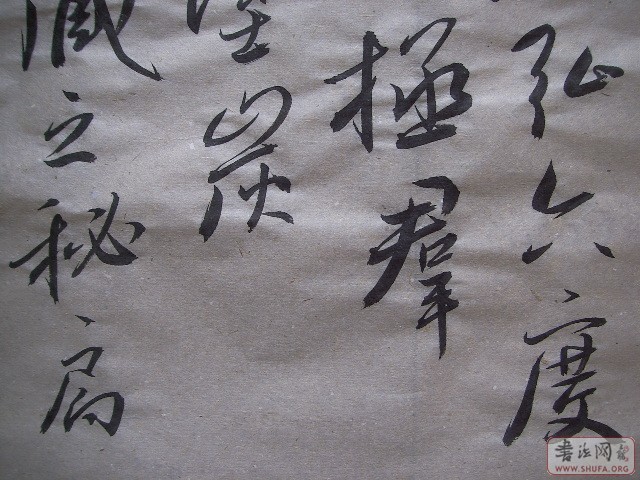 弘六度
拯群
塗炭
藏之秘扃
書法网
WWW.SHUFA.ORG